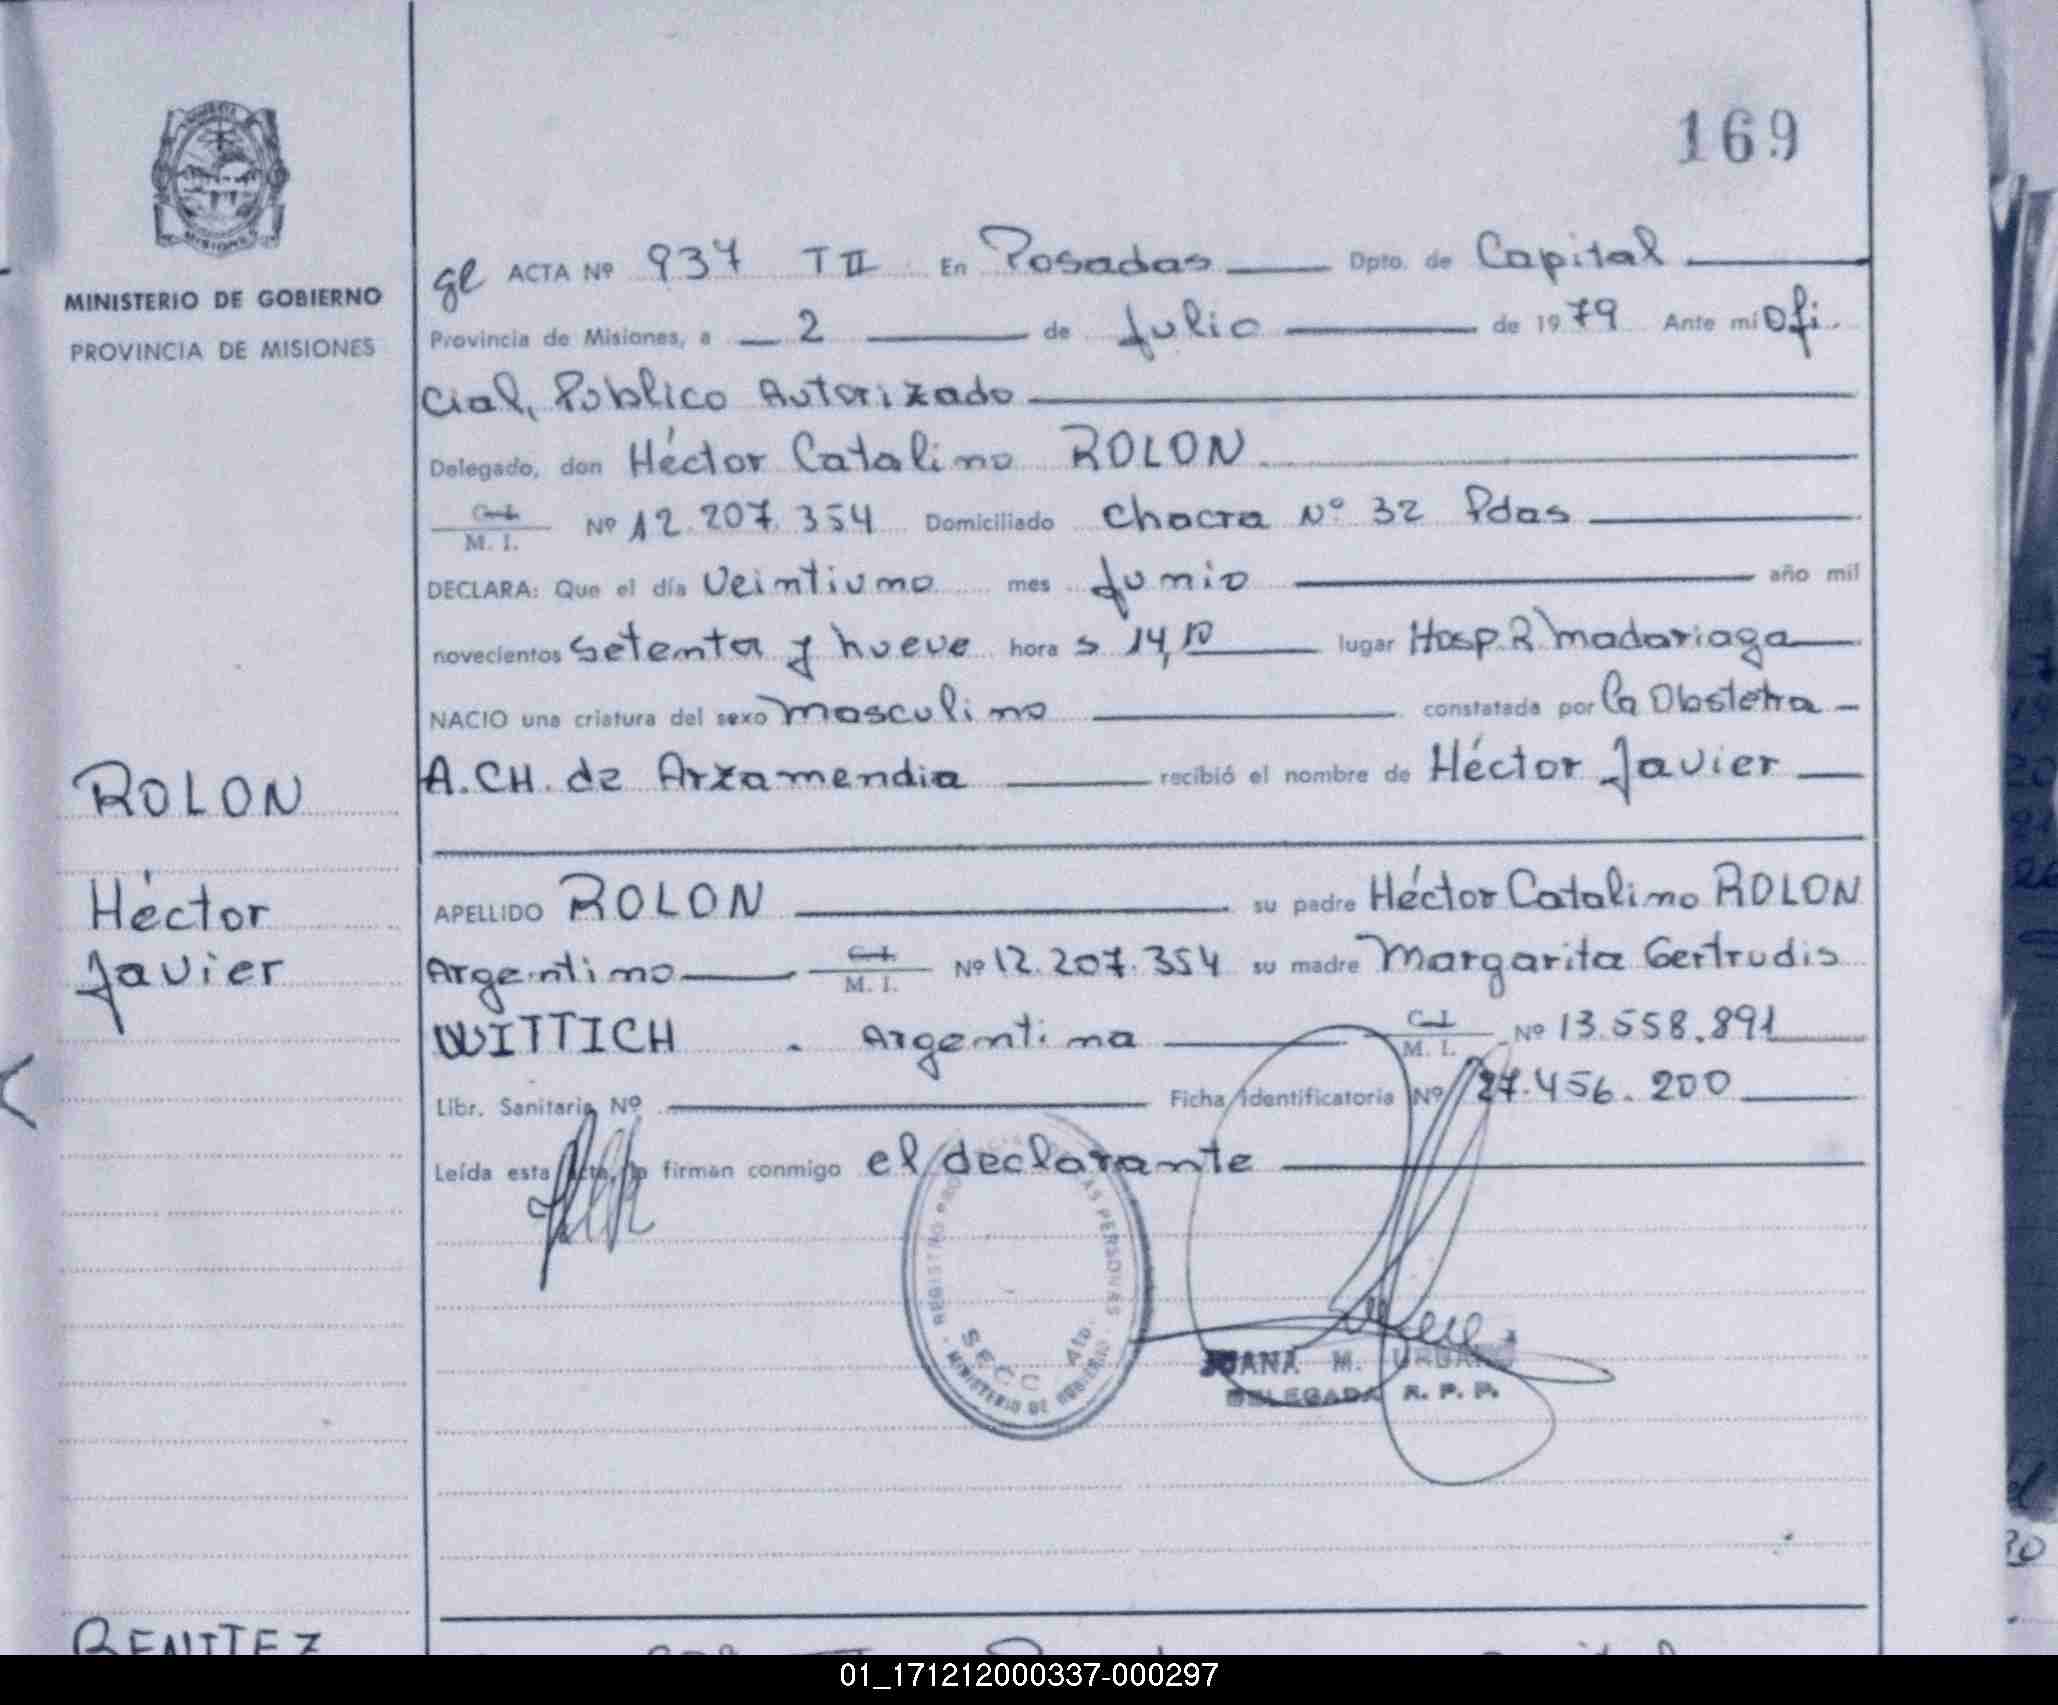 169
MINISTERIO DE GOBIERNO
PROVINCIA DE MISIONES
ROLON
Héctor
Javier
ge ACTA Nº 937 T II En Posadas Dpto. de Capital
Provincia de Misiones, a 2 de Julio de 1979 Ante mí Ofi
cial, Público Autorizado
Delegado, don Héctor Catalino ROLON
C. I. / M. I. Nº 12.207.354 Domiciliado Chacra Nº 32 Pdas
DECLARA: Que el día Veintiuno mes Junio año mil
novecientos setenta y nueve hora s 14,10 lugar Hosp. R Madariaga
NACIO una criatura del sexo Masculino constatada por la Obstetra
A.CH. de Arzamendia recibió el nombre de Héctor Javier
APELLIDO ROLON su padre Héctor Catalino ROLON
Argentino C. I. / M. I. Nº 12.207.354 su madre Margarita Gertrudis
WITTICH . Argentina C. I. / M. I. Nº 13.558.891
Libr. Sanitaria Nº Ficha Identificatoria Nº 27.456.200
Leída esta acta, la firman conmigo el declarante
REGISTRO PROVINCIAL DE LAS PERSONAS
SECC 4ta.
MINISTERIO DE GOBIERNO
JUANA M.
DELEGADA R. P. P.
BENITEZ
01_171212000337-000297